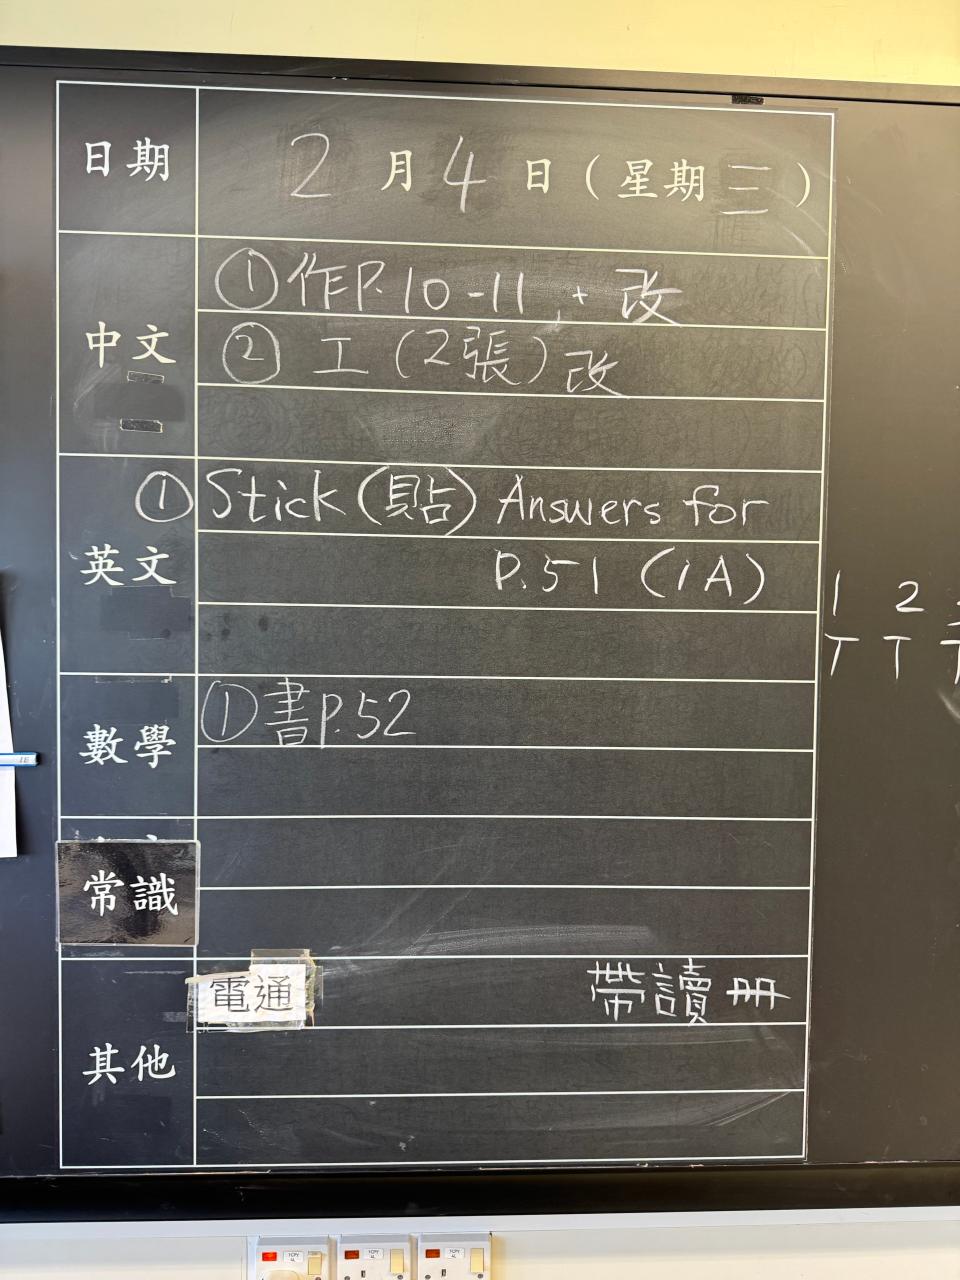 日期 2月4日（星期三）
中文
①作P.10-11 + 改
② 工（2張）改
英文
① Stick（貼）Answers for
P.51（1A）
1 2
T T T
數學
①書P.52
常識
其他
電通 帶讀冊